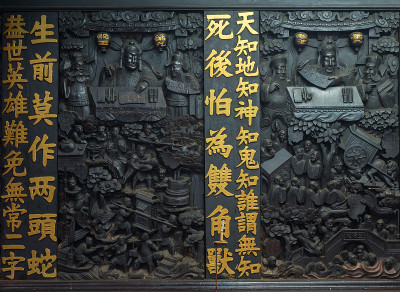 天知地知神知鬼知誰謂無知
死後怕為雙角獸
生前莫作两頭蛇
蓋世英雄難免無常二字